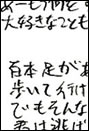 大好きなことも
百本足があ
歩いて行け
でもそんな
君は逃げ